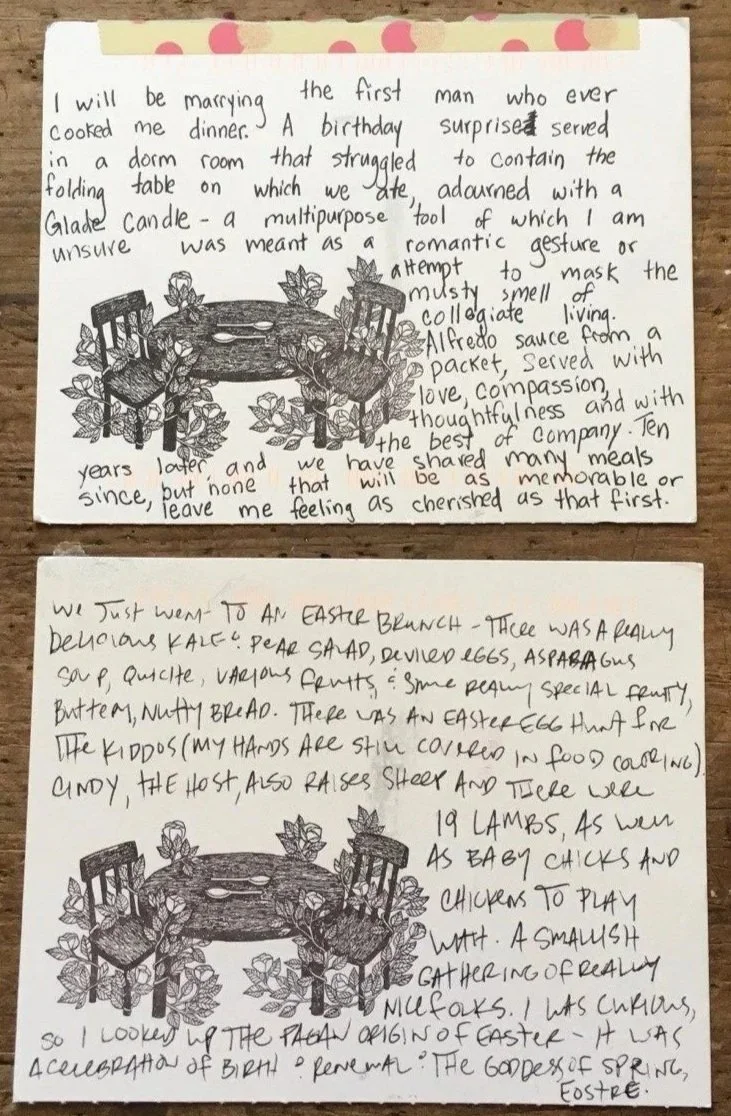 I will be marrying the first man who ever
cooked me dinner. A birthday surprise served
in a dorm room that struggled to contain the
folding table on which we ate, adourned with a
Glade candle - a multipurpose tool of which I am
unsure was meant as a romantic gesture or
attempt to mask the
musty smell of
collegiate living.
Alfredo sauce from a
packet, served with
love, compassion,
thoughtfulness and with
the best of company. Ten
years later, and we have shared many meals
since, but none that will be as memorable or
leave me feeling as cherished as that first.
WE JUST WENT TO AN EASTER BRUNCH - THERE WAS A REALLY
DELICIOUS KALE & PEAR SALAD, DEVILED EGGS, ASPARAGUS
SOUP, QUICHE, VARIOUS FRUITS, & SOME REALLY SPECIAL FRUITY,
BUTTERY, NUTTY BREAD. THERE WAS AN EASTER EGG HUNT FOR
THE KIDDOS (MY HANDS ARE STILL COVERED IN FOOD COLORING).
CINDY, THE HOST, ALSO RAISES SHEEP AND THERE WERE
19 LAMBS, AS WELL
AS BABY CHICKS AND
CHICKENS TO PLAY
WITH. A SMALLISH
GATHERING OF REALLY
NICE FOLKS. I WAS CURIOUS,
SO I LOOKED UP THE PAGAN ORIGIN OF EASTER - IT WAS
A CELEBRATION OF BIRTH & RENEWAL & THE GODDESS OF SPRING,
EOSTRE.